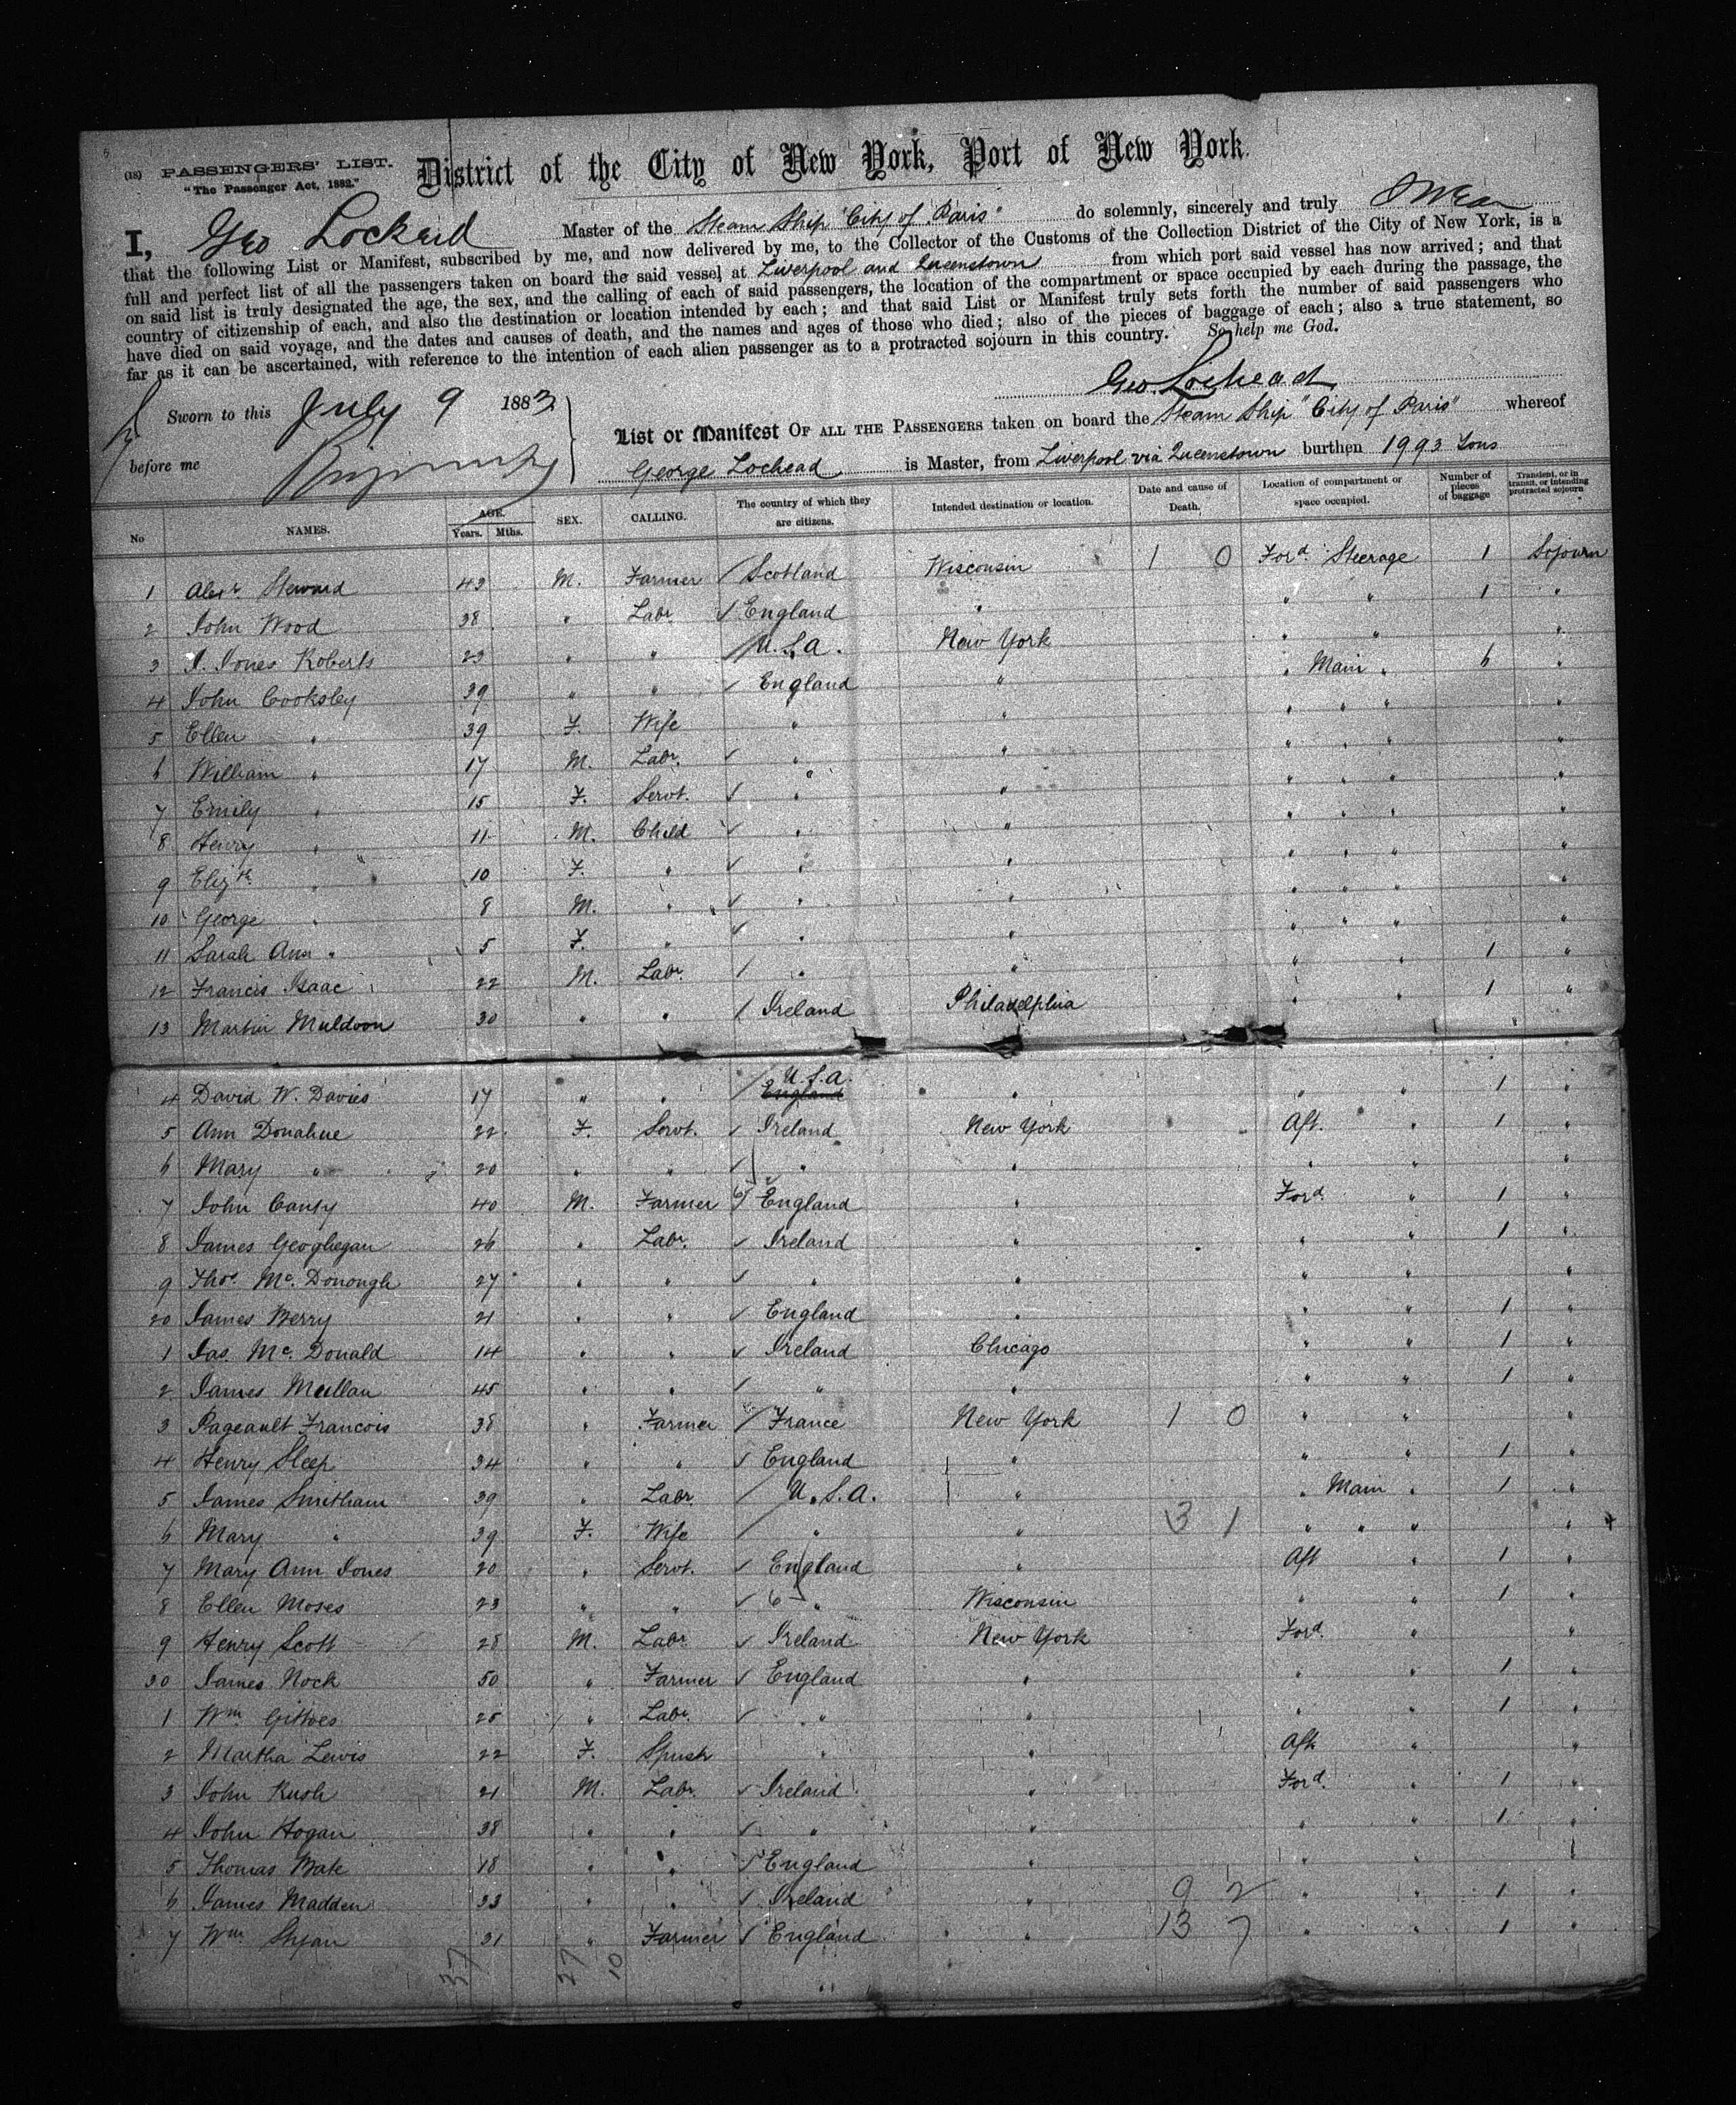 (18) PASSENGERS' LIST.
"The Passenger Act, 1882."
District of the City of New York, Port of New York.
I, Geo Lockead Master of the Steam Ship "City of Paris" do solemnly, sincerely and truly swear
that the following List or Manifest, subscribed by me, and now delivered by me, to the Collector of the Customs of the Collection District of the City of New York, is a
full and perfect list of all the passengers taken on board the said vessel at Liverpool and Queenstown from which port said vessel has now arrived; and that
on said list is truly designated the age, the sex, and the calling of each of said passengers, the location of the compartment or space occupied by each during the passage, the
country of citizenship of each, and also the destination or location intended by each; and that said List or Manifest truly sets forth the number of said passengers who
have died on said voyage, and the dates and causes of death, and the names and ages of those who died; also of the pieces of baggage of each; also a true statement, so
far as it can be ascertained, with reference to the intention of each alien passenger as to a protracted sojourn in this country. So help me God.
Geo. Lochead
Sworn to this July 9 1883
before me
List or Manifest OF ALL THE PASSENGERS taken on board the Steam Ship "City of Paris" whereof
George Lochead is Master, from Liverpool via Queenstown burthen 1993 Tons
No NAMES. AGE. Years. Mths. SEX. CALLING. The country of which they are citizens. Intended destination or location. Date and cause of Death. Location of compartment or space occupied. Number of pieces of baggage Transient, or in transit, or intending protracted sojourn
1 Alexr. Steward 43 M. Farmer / Scotland Wisconsin 1 0 Ford. Steerage 1 Sojourn
2 John Wood 38 " Labr. / England " " " 1 "
3 J. Jones Roberts 23 " " / U.S.A. New York " " "
4 John Cooksley 39 " " ✓ England " " Main " 6 "
5 Ellen " 39 F. Wife " " " " " "
6 William " 17 M. Labr. ✓ " " " " " "
7 Emily " 15 F. Servt. ✓ " " " " " "
8 Henry " 11 M. Child ✓ " " " " " "
9 Elizth. " 10 F. " ✓ " " " " " "
10 George " 8 M. " ✓ " " " " " "
11 Sarah Ann " 5 F. " ✓ " " " " " "
12 Francis Isaac 22 M. Labr. / " " " " 1 "
13 Martin Muldoon 30 " " / Ireland Philadelphia " " 1 "
4 David W. Davies 17 " " / U.S.A. England " " " 1 "
5 Ann Donahue 22 F. Servt. ✓ Ireland New York Aft. " 1 "
6 Mary " 20 " " ✓ " " " " "
7 John Canty 40 M. Farmer England " Ford. " 1 "
8 James Geoghegan 26 " Labr. ✓ Ireland " " " 1 "
9 Thos. Mc. Donough 27 " " ✓ " " " " "
20 James Berry 21 " " ✓ England " " " 1 "
1 Jas. Mc. Donald 14 " " ✓ Ireland Chicago " " 1 "
2 James Mullan 45 " " ✓ " " " " 1 "
3 Pageault Francois 38 " Farmer / France New York 1 0 " " "
4 Henry Sleep 34 " " ✓ England " " " 1 "
5 James Smitham 39 " Labr. / U.S.A. " " Main " 1 "
6 Mary " 39 F. Wife / " " 3 1 " " " "
7 Mary Ann Jones 20 " Servt. ✓ England " Aft " 1 "
8 Ellen Moses 23 " " ✓ 6 " Wisconsin " " 1 "
9 Henry Scott 28 M. Labr. ✓ Ireland New York Ford. " "
30 James Nock 50 " Farmer ✓ England " " " 1 "
1 Wm. Gittoes 25 " Labr. ✓ " " " " 1 "
2 Martha Lewis 22 F. " " Aft. " "
3 John Rush 21 M. Labr. ✓ Ireland " Ford. " 1 "
4 John Hogan 38 " " ✓ " " " " 1 "
5 Thomas Bate 18 " " ✓ England " " " 1
6 James Madden 33 " " ✓ Ireland " 9 2 " " 1 "
7 Wm. 31 " Farmer ✓ England " 13 7 " " 1 "
37 27 10